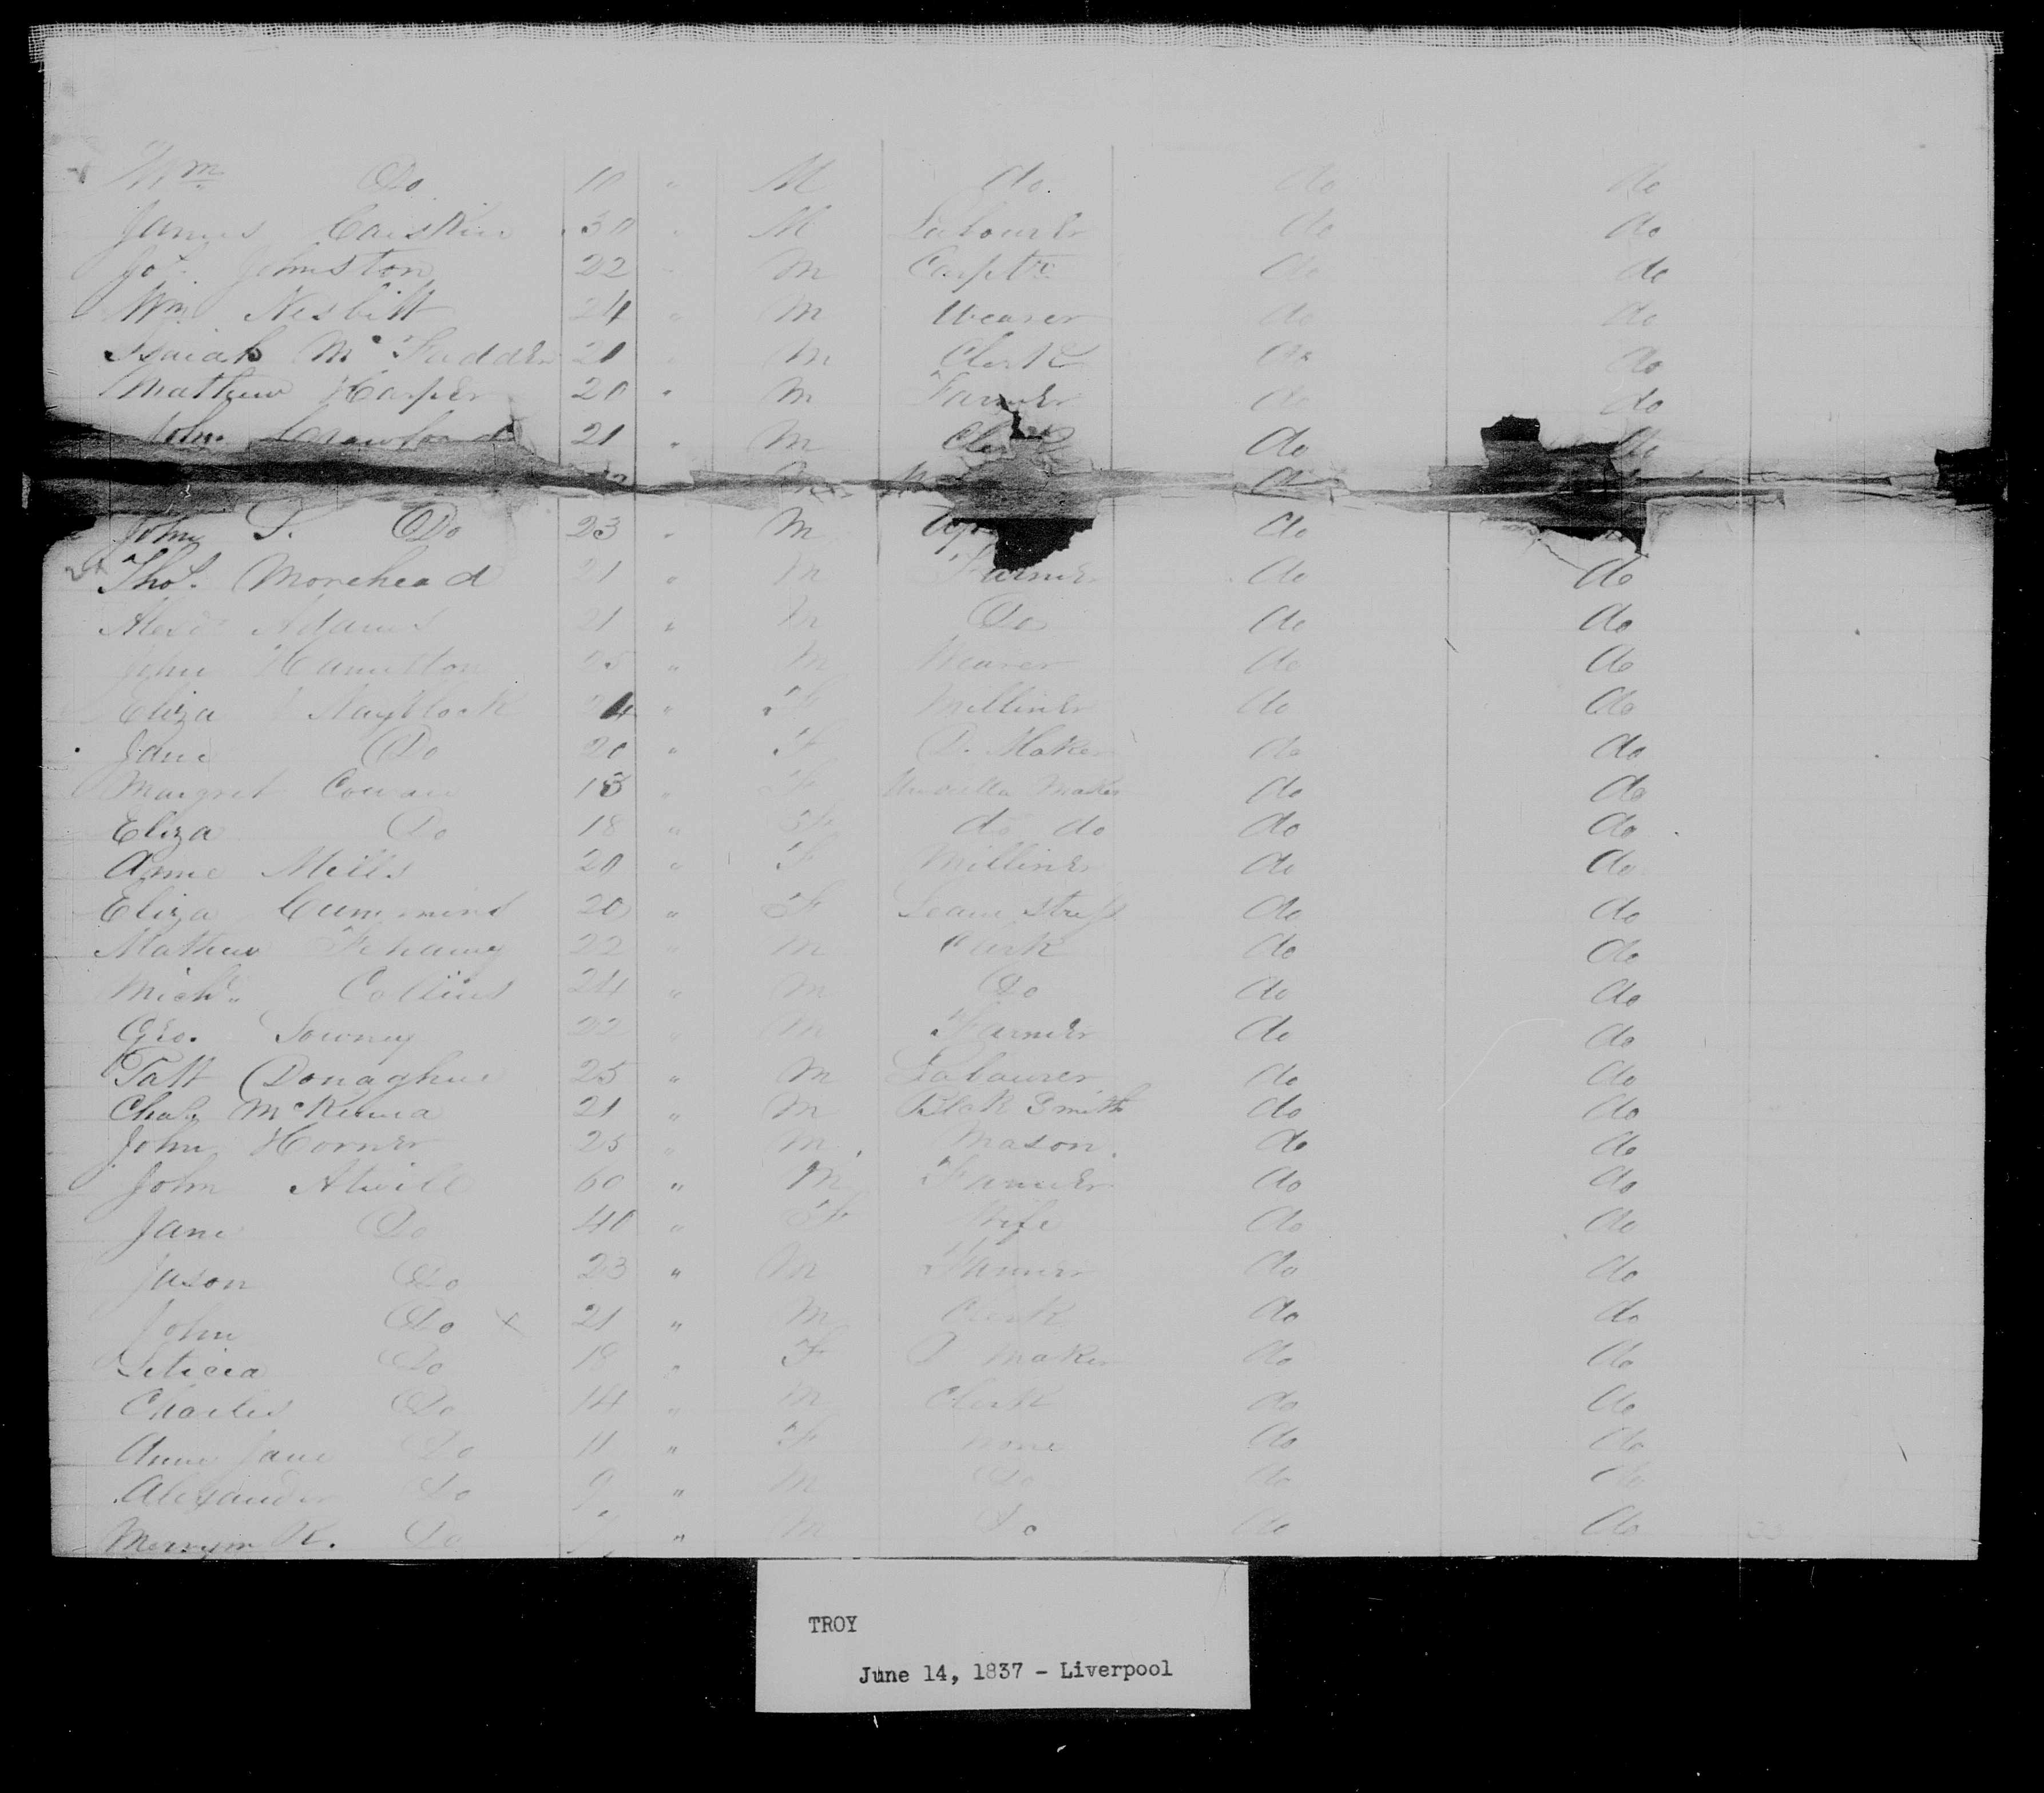 Wm Do 10 " M do. do do
James 30 " M Labourer do do
Jos. Johnston 22 " M Carptr do do
Wm Nesbitt 24 " M Weaver do do
Isaiah Mc Fadden 21 M Clerk do do
Mathew Harper 20 " M Farmer do do
John Crawford 21 " M Clerk do do
John S. Do 23 " M do
Thos. Morehead 21 " M Farmer do do
Alexr Adams 21 " M Do do do
John Hamilton 25 " M Weaver do do
Eliza 24 " F Milliner do do
Jane Do 20 " F D. Maker do do
Margret Cowan " F Umbrella Maker do do
Eliza Do 18 " F do do do do
Anne Mills 20 " F Milliner do do
Eliza Cummins 20 " F Seam stress do do
Mathew 22 " M Clerk do do
Michl. Collins 24 " M Do do do
Geo. 22 " M Farmer do do
Patt Donaghue 25 " M Labourer do do
Chas. McKenna 21 " M Black Smith do do
John Horner 25 " M. Mason. do do
John Atwill 60 " M Farmer do do
Jane Do 40 " F Wife do do
Jason Do 23 " M Farmer do do
John Do x 21 " M Clerk do do
Leticia Do 18 " F D Maker do do
Charles Do 14 " M Clerk do do
Anne Jane Do 11 " F None do do
Alexander Do 9 " M Do do do
K. Do " M Do do do
TROY
June 14, 1837 - Liverpool